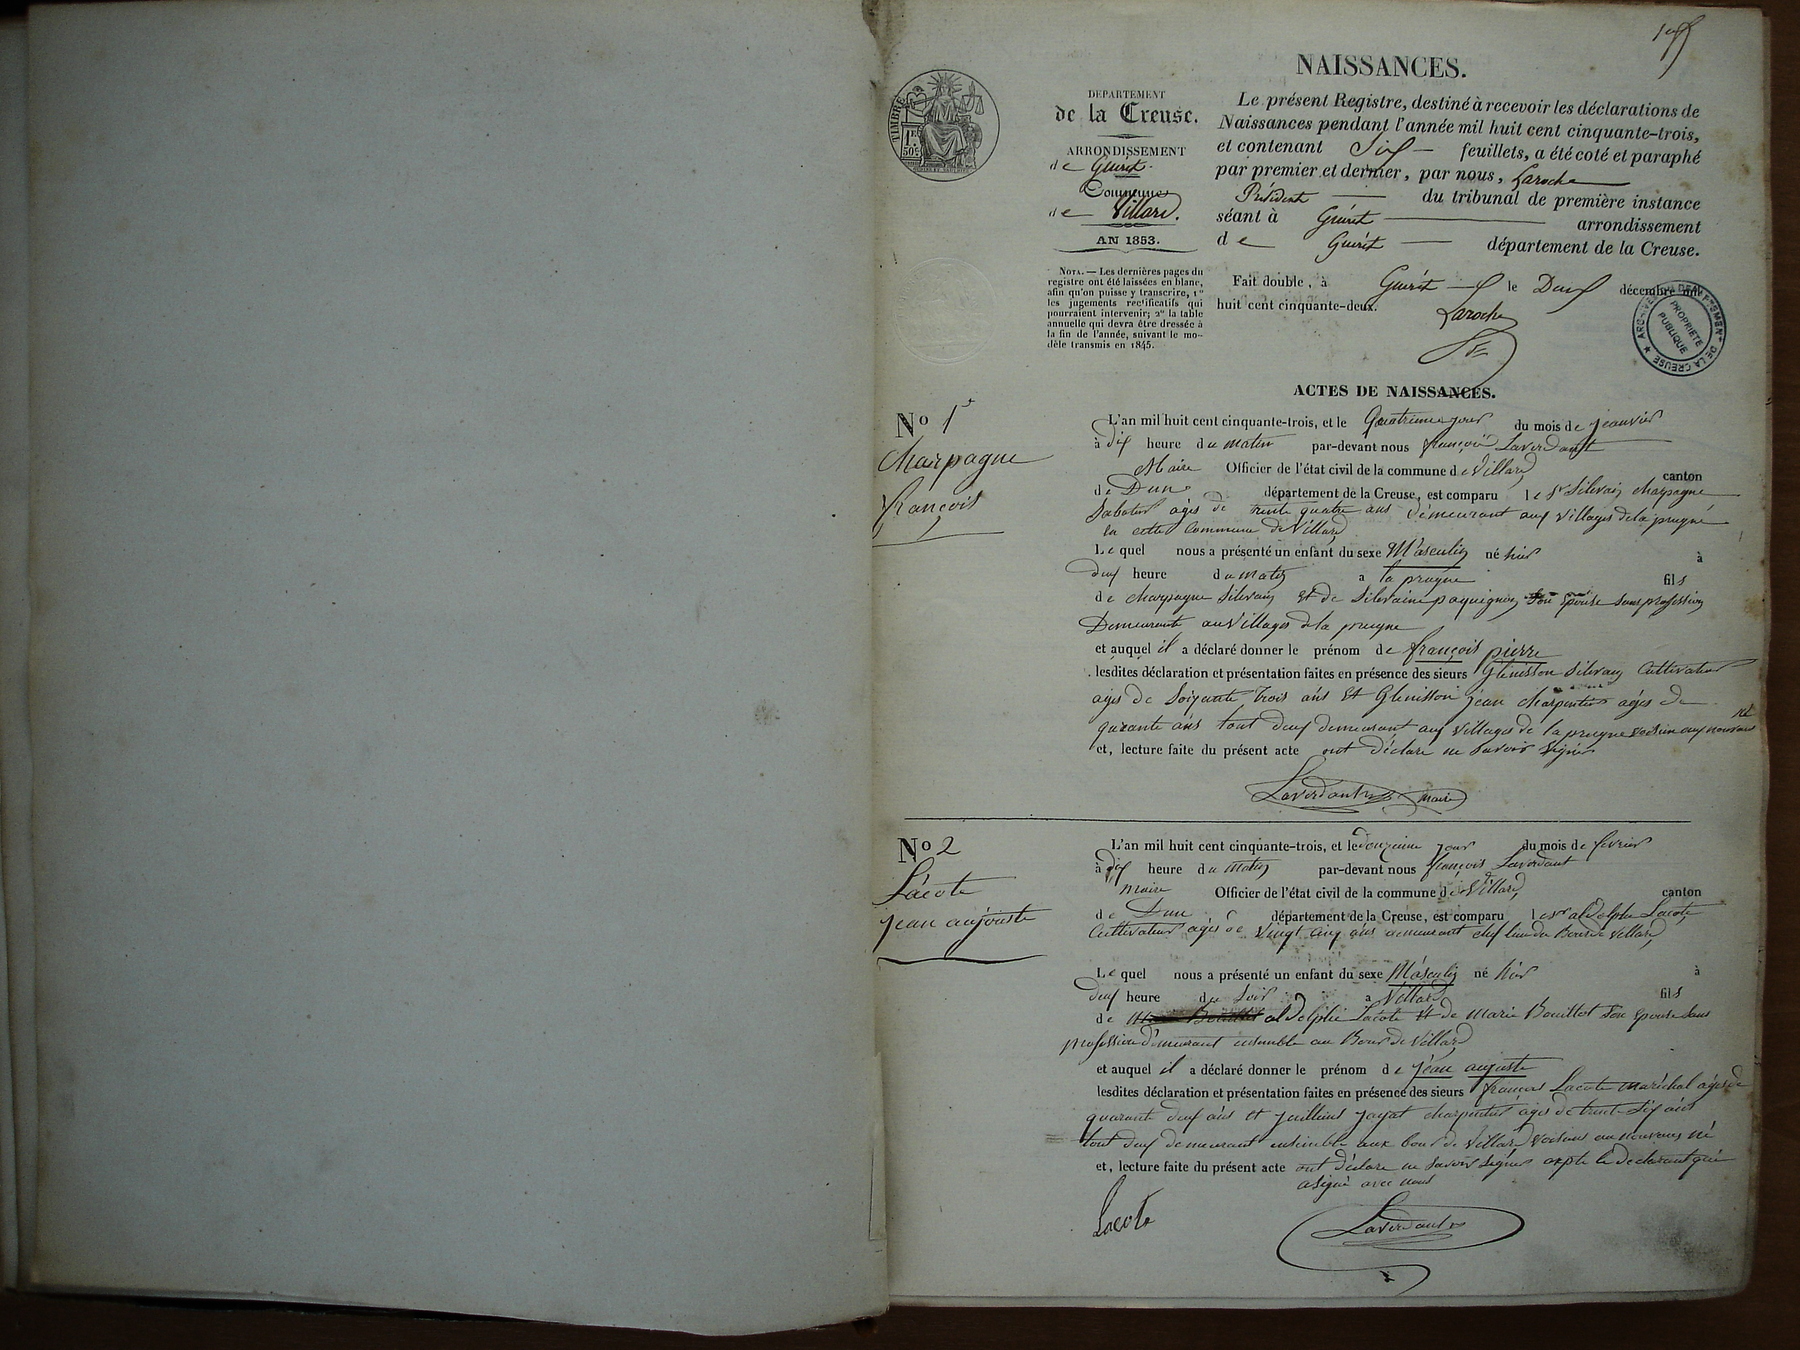 NAISSANCES.
TIMBRE
1F.
50C
DÉPARTEMENT
de la Creuse.
ARRONDISSEMENT
de Guéret.
Commune
de Villard.
AN 1853.
NOTA. — Les dernières pages du
registre ont été laissées en blanc,
afin qu'on puisse y transcrire, 1°
les jugements rectificatifs qui
pourraient intervenir; 2° la table
annuelle qui devra être dressée à
la fin de l'année, suivant le mo-
dèle transmis en 1845.
Le présent Registre, destiné à recevoir les déclarations de
Naissances pendant l'année mil huit cent cinquante-trois,
et contenant Six feuillets, a été coté et paraphé
par premier et dernier, par nous, Laroche
Président du tribunal de première instance
séant à Guéret arrondissement
de Guéret département de la Creuse.
Fait double, à Guéret le Deux décembre mil
huit cent cinquante-deux.
Laroche
ARCHIVES DU DÉPARTEMENT DE LA CREUSE
PROPRIÉTÉ
PUBLIQUE
ACTES DE NAISSANCES.
No 1er
Charpagne
françois
L'an mil huit cent cinquante-trois, et le Quatrieme jour du mois de jeanvier
à dix heure du matin par-devant nous françois Laverdant
Maire Officier de l'état civil de la commune de Villard canton
de Dun département de la Creuse, est comparu le Sr Silvain charpagne
Sabotier agés de trente quatre ans demeurant aux villages de la prugne
en cette Commune de Villard
Lequel nous a présenté un enfant du sexe Masculin né hier à
deux heure du matin a la prugne fils
de charpagne Silvain et de Silvaine paquignon Son épouse Sans profession
Demeurante au Villages de la prugne
et auquel il a déclaré donner le prénom de françois pierre
lesdites déclaration et présentation faites en présence des sieurs Glenisson Silvain Cultivateur
agés de Soixante trois ans et Glenisson jean charpentier agés de
quarante ans tout deux demeurant aux villages de la prugne voisin aux nouveau né
et, lecture faite du présent acte ont déclare ne Savoir Signer
Laverdant maire
No 2
Lacote
jean aujuste
L'an mil huit cent cinquante-trois, et le douzieme jour du mois de fevrier
à dix heure du matin par-devant nous françois Laverdant
maire Officier de l'état civil de la commune de Villard canton
de Dun département de la Creuse, est comparu le sr aldelphe Lacote
Cultivateur agés de Vingt cinq ans demeurant chef lieu du Bour de Villard
Lequel nous a présenté un enfant du sexe Masculin né hier à
deux heure du Soir a Villard fils
de aldelphe Lacote et de Marie Bouillot Son épouse Sans
profession demeurant ensemble au Bour de Villard
et auquel il a déclaré donner le prénom de jean aujuste
lesdites déclaration et présentation faites en présence des sieurs françois Lacote maréchal agés de
quarante deux ans et juillient jayat charpentier agés de trente Six ans
tout deux demeurant ensemble aux bour de Villard voisins au nouveau né
et, lecture faite du présent acte ont déclare ne Savoir Signer exepte le declarant qui
a signé avec nous
Lacote
Laverdant